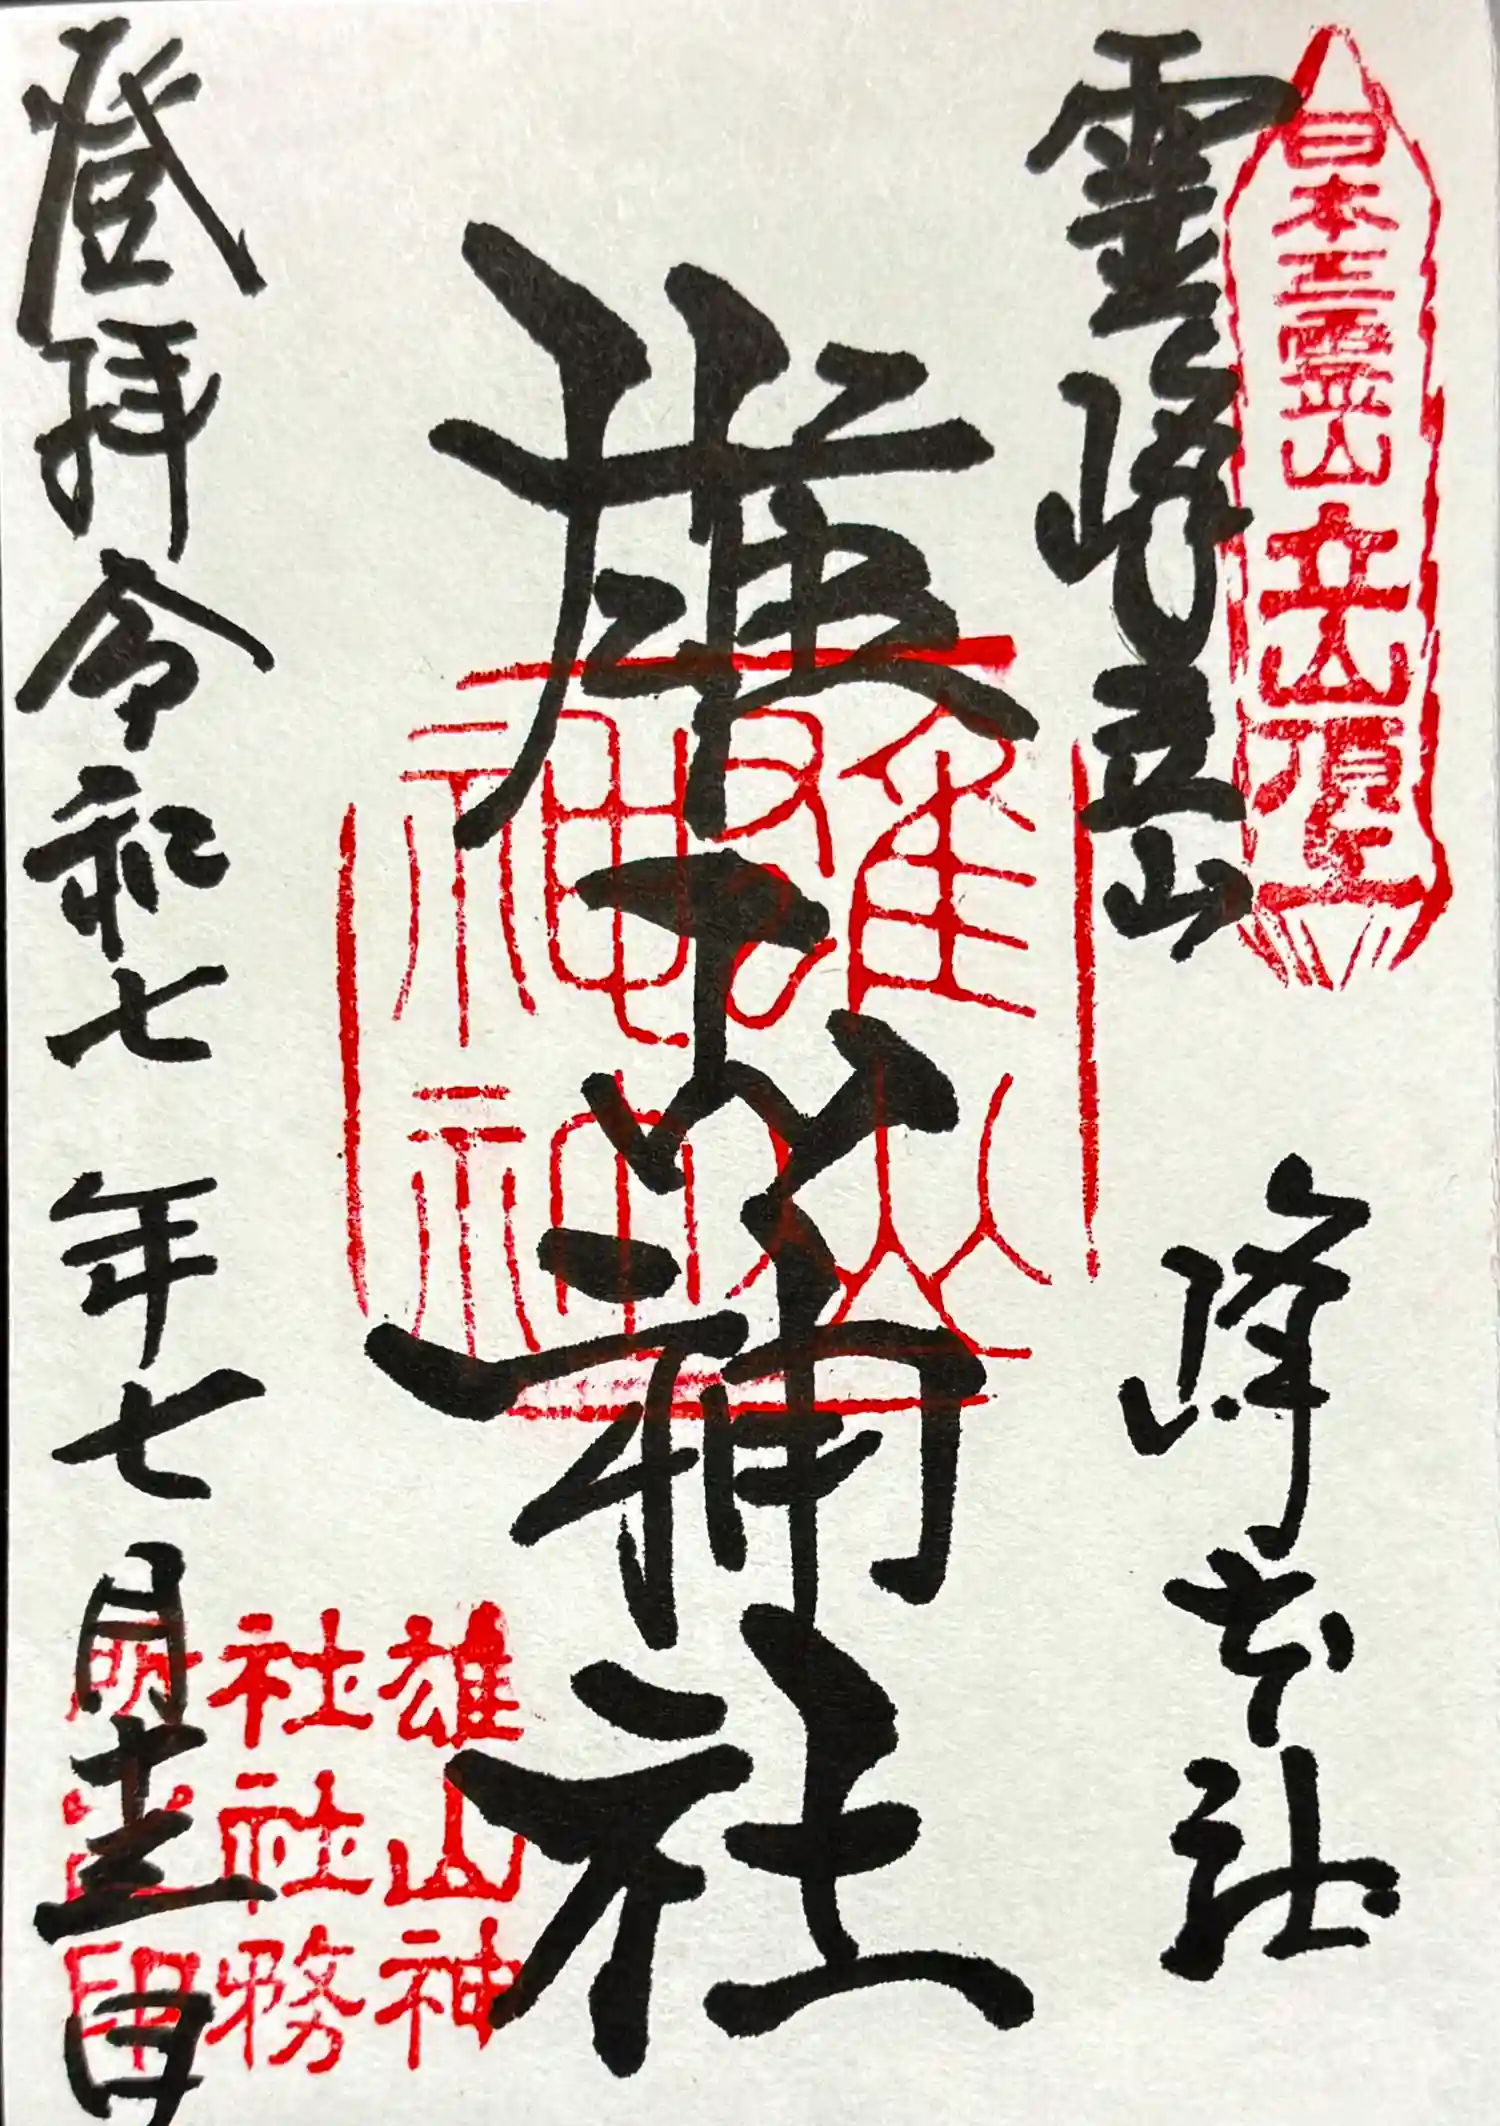 日本三霊山立山頂上
霊峰立山
峰本社
社
雄山
神社
雄山神
社社務
所之印
登拝令和七年七月
日